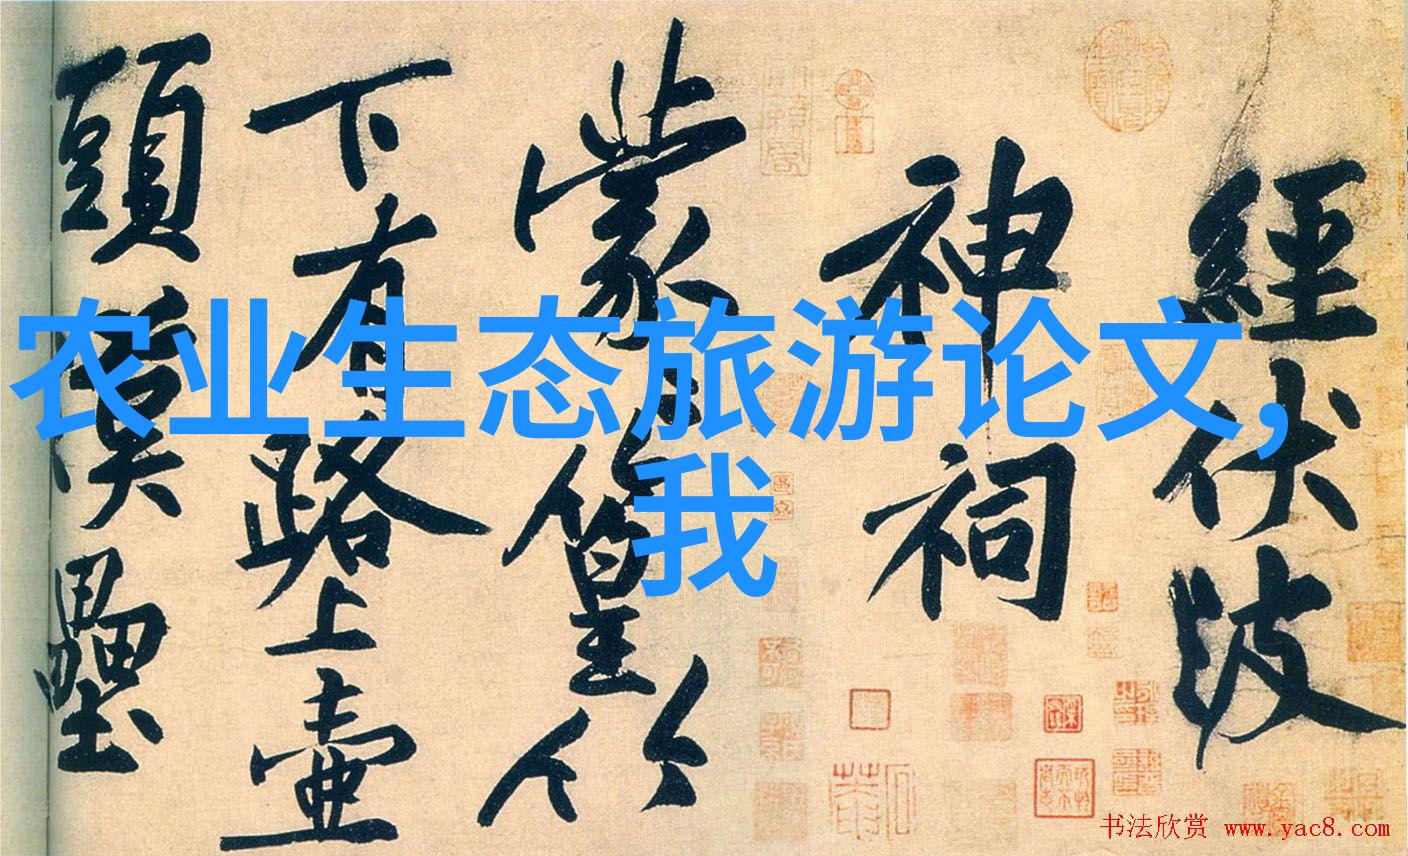 經伏波
神祠
蒙蒙篁竹
下有路上壺
頭漢壘
农业生态旅游论文,
我
书法欣赏 www.yac8.com